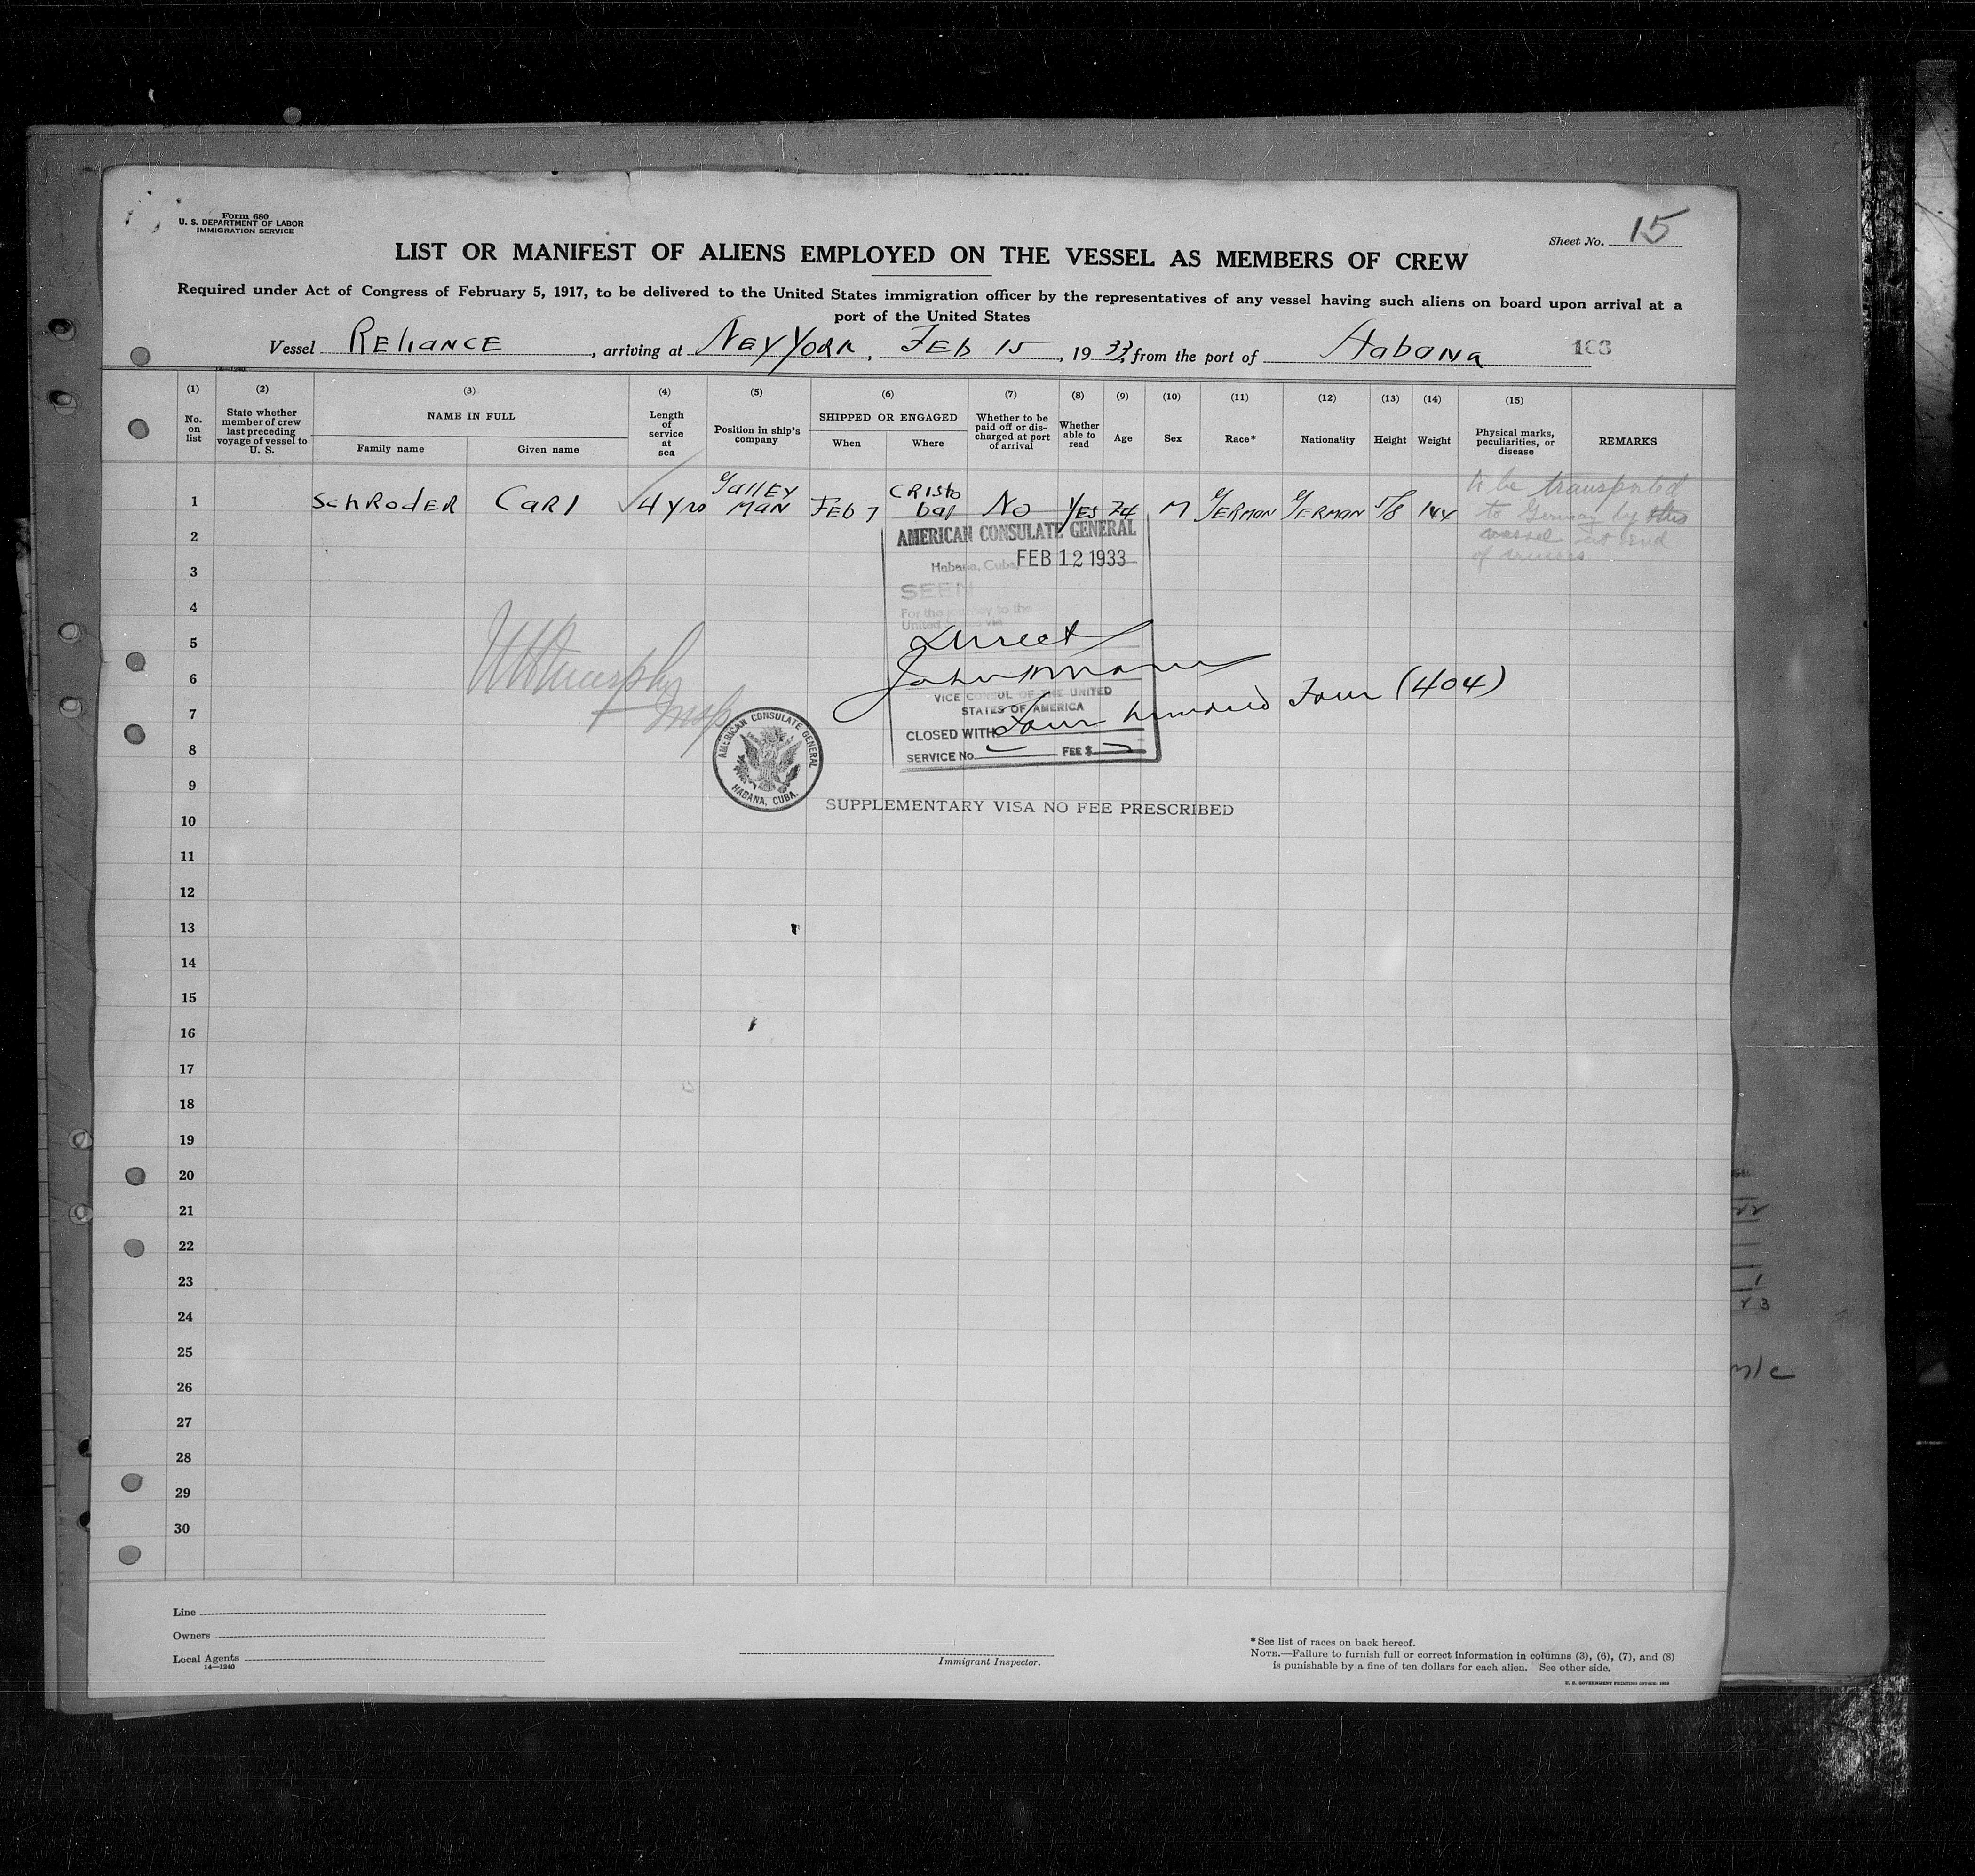 Form 680
U. S. DEPARTMENT OF LABOR
IMMIGRATION SERVICE
Sheet No. 15
LIST OR MANIFEST OF ALIENS EMPLOYED ON THE VESSEL AS MEMBERS OF CREW
Required under Act of Congress of February 5, 1917, to be delivered to the United States immigration officer by the representatives of any vessel having such aliens on board upon arrival at a
port of the United States
Vessel RELIANCE, arriving at NEY YORK, FEB 15, 1933, from the port of Habana
(1) (2) (3) (4) (5) (6) (7) (8) (9) (10) (11) (12) (13) (14) (15)
No. on list
State whether member of crew last preceding voyage of vessel to U. S.
NAME IN FULL
Family name Given name
Length of service at sea
Position in ship's company
SHIPPED OR ENGAGED
When Where
Whether to be paid off or discharged at port of arrival
Whether able to read
Age
Sex
Race*
Nationality
Height
Weight
Physical marks, peculiarities, or disease
REMARKS
1 SCHRODER CARl 4 yrs GallEY MAN FEB 7 CRISTobal No YES M GERMAN GERMAN 5/8 144
to be transported
to Germany by this
vessel at end
of cruises
2
AMERICAN CONSULATE GENERAL
3
Habana, Cuba FEB 12 1933
SEEN
4
For the journey to the
United States via
5
Direct
6
VICE CONSUL OF THE UNITED
7
STATES OF AMERICA
CLOSED WITH Four hundred Four (404)
8
SERVICE No. FEE $
AMERICAN CONSULATE GENERAL
HABANA, CUBA.
9
SUPPLEMENTARY VISA NO FEE PRESCRIBED
10
11
12
13
14
15
16
17
18
19
20
21
22
23
24
25
26
27
28
29
30
Line
Owners
Local Agents
14—1240
Immigrant Inspector.
*See list of races on back hereof.
NOTE.—Failure to furnish full or correct information in columns (3), (6), (7), and (8)
is punishable by a fine of ten dollars for each alien. See other side.